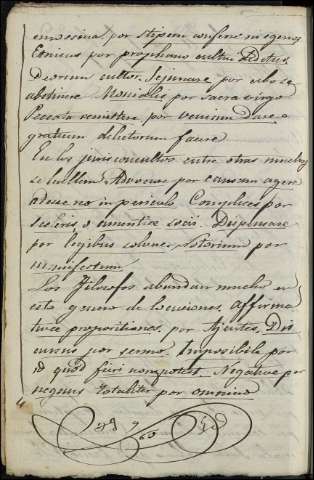 por stipem conferre in egenos
Ecnicus por prophano cultui deditus,
Deorum cultor. Jejunare por cibo se
abstinere Moniales por sacra virgo
Peccata remittere por veniam Dare o
gratiam delictorum facere.
En los jurisconsultos entre otras muchas
se hallan: Advocare por causam agere
adesse reo in periculo Complices por
sceleris o amentiæ socii. Dispensare
por legibus solvere, Notorium por
manifestum.
Los Filosofos abundan mucho en
este genero de locuciones. Affirma
tivæ propositiones, por Ajentes, Dis
cursus por sermo. Impossibile por
id quod fieri non potest. Negative por
negans totaliter por omnino